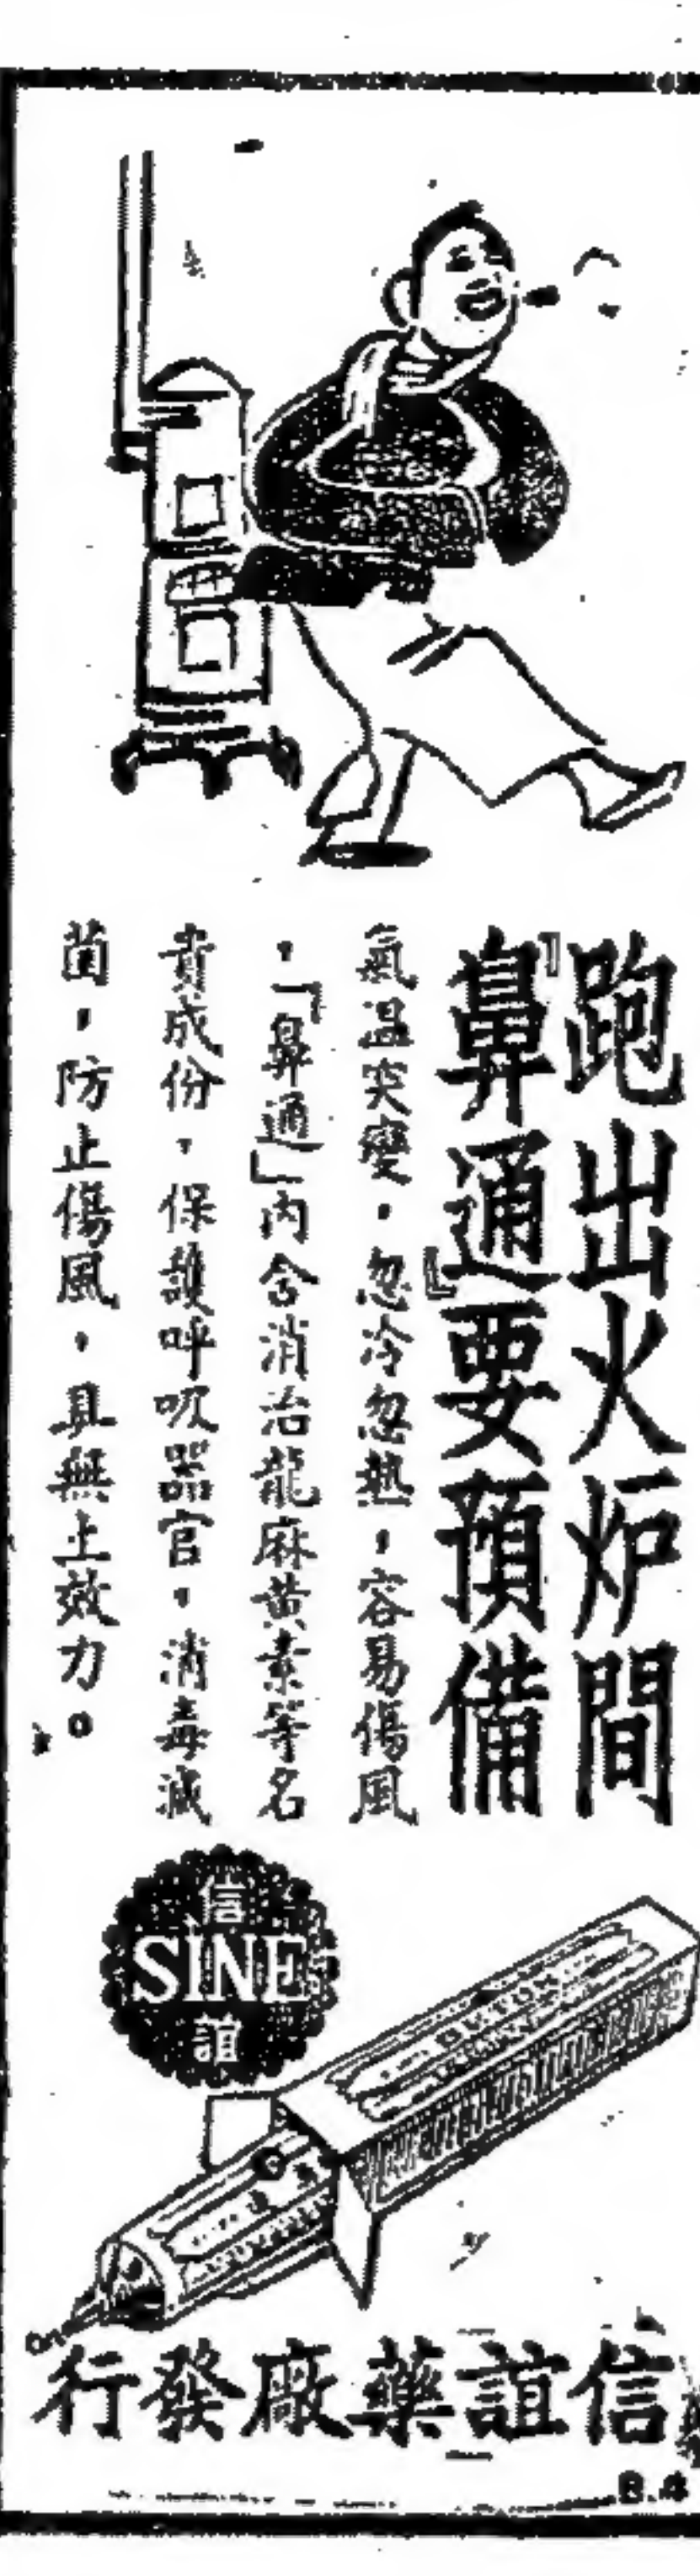 跑出火炉間
『鼻通』要預備
氣温突變，忽冷忽熱，容易傷風
，「鼻通」內含消治龍麻黄素等名
貴成份，保護呼吸器官，消毒滅
菌，防止傷風，具無上效力。
信
SINE
誼
信誼藥厰發行
B.4